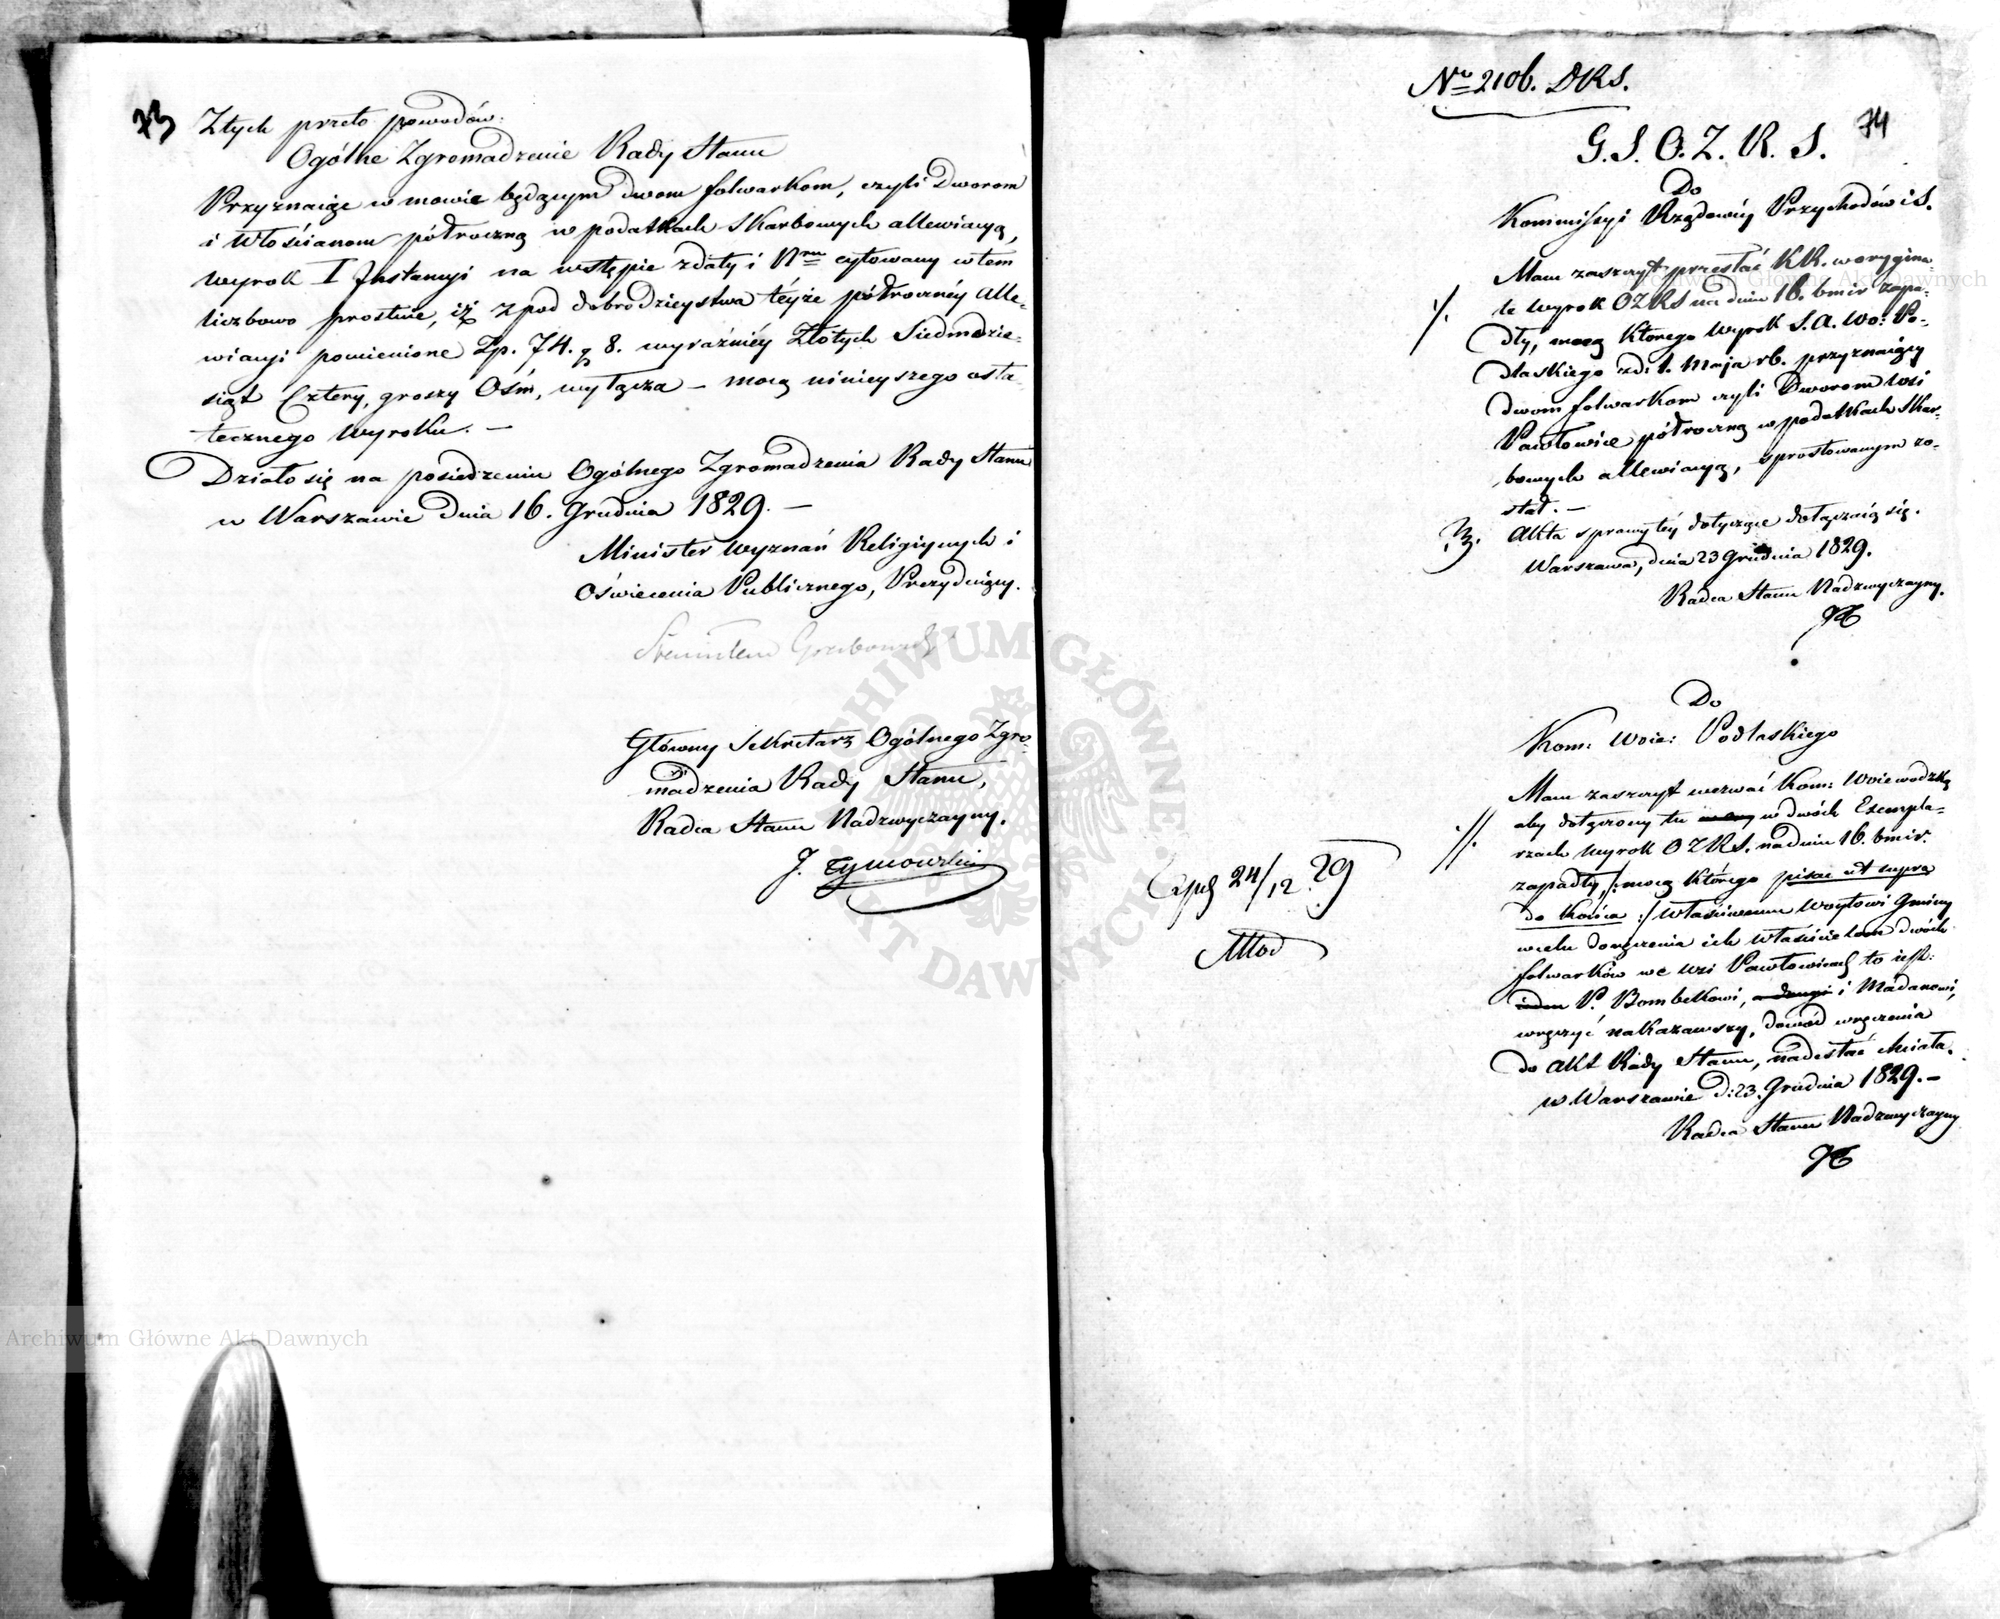 73
Z tych przeto powodów.
Ogólne Zgromadzenie Rady Stanu
Przyznaiąc w mowie będącym dwom folwarkom, czyli Dworom
i Włościanom półroczną w podatkach Skarbowych allewiacyą,
wyrok I Instancyi na wstępie z daty i Nru cytowany w tem
liczbowo prostuie, iż z pod dobrodzieystwa téyże półrocznéy alle-
wiacyi pomienione Zp. 74. g 8. wyraźniéy Złotych Siedmdzie-
siąt Cztery, groszy Ośm, wyłącza – mocą ninieyszego osta-
tecznego Wyroku. –
Działo się na posiedzeniu Ogólnego Zgromadzenia Rady Stanu
w Warszawie Dnia 16. Grudnia 1829. –
Minister Wyznań Religiynych i
Oświecenia Publicznego, Prezyduiący.
Stanisław Grabowski
Główny Sekretarz Ogólnego Zgro-
madzenia Rady Stanu,
Radca Stanu Nadzwyczayny.
J. Tymowski
No 2106. DKS.
74
G. S. O. Z. R. S.
Do
Kommissyi Rządowéy Przychodów i S.
Mam zaszczyt przesłać KR. w orygina-
1/.
le wyrok OZRS na dniu 16. bmir zapa-
dły, mocą którego wyrok S. A. Wo: Po-
dlaskiego z d. 1. Maja rb. przyznaiący
dwom folwarkom czyli Dworom wsi
Pawłowice półroczną w podatkach Skar-
bowych allewiacyą, sprostowanym zo-
stał. –
Akta sprawy téy dotyczące dołączaią się.
Warszawa, dnia 23 Grudnia 1829.
Radca Stanu Nadzwyczayny.
JT
Do
Kom: Woie: Podlaskiego
Mam zaszczyt wezwać Kom: Woiewodzką
aby dołączony tu w dwóch Exempla-
//.
rzach wyrok OZRS. na dniu 16. bmir.
zapadły /: mocą którego pisać ut supra
do Końca :/ właściwemu Woytowi Gminy
w celu doręczenia ich właścicielom dwóch
folwarków we wsi Pawłowicach to iest:
ieden P. Bombekowi, a drugi i Madanowi,
wręczyć nakazawszy, dowód wręczenia
do Akt Rady Stanu, nadesłać chciała.
w Warszawie d: 23. Grudnia 1829. –
Radca Stanu Nadzwyczayny
JT
24/12 29
Archiwum Główne Akt Dawnych
Archiwum Główne Akt Dawnych
ARCHIWUM GŁÓWNE AKT DAWNYCH